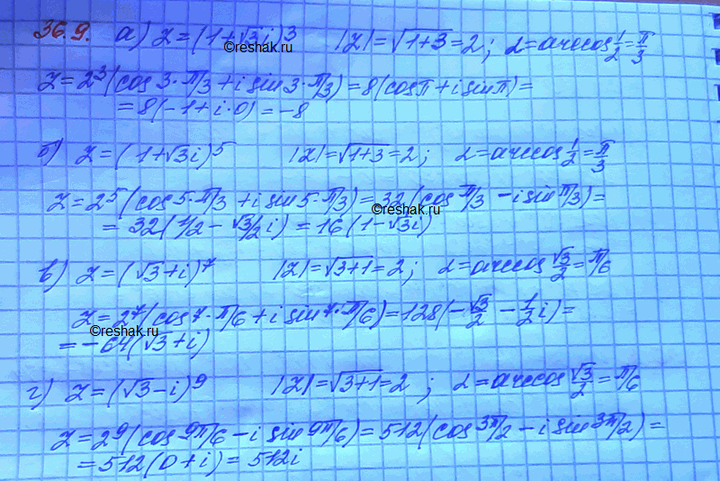 36.9. а) z=(1+√3i)³ |z|=√1+3=2; α=arccos 1/2=π/3
©reshak.ru
z=2³(cos 3·π/3+i sin 3·π/3)=8(cosπ+i sinπ)=
=8(-1+i·0)=-8
б) z=(1+√3i)⁵ |z|=√1+3=2; α=arccos 1/2=π/3
z=2⁵(cos 5·π/3+i sin 5·π/3)=32(cos π/3-i sin π/3)=
©reshak.ru
=32(1/2-√3/2 i)=16(1-√3i)
в) z=(√3+i)⁷ |z|=√3+1=2; α=arccos √3/2=π/6
z=2⁷(cos 7·π/6+i sin 7·π/6)=128(-√3/2-1/2 i)=
©reshak.ru
=-64(√3+i)
г) z=(√3-i)⁹ |z|=√3+1=2; α=arccos √3/2=π/6
z=2⁹(cos 9π/6-i sin 9π/6)=512(cos 3π/2-i sin 3π/2)=
=512(0+i)=512i